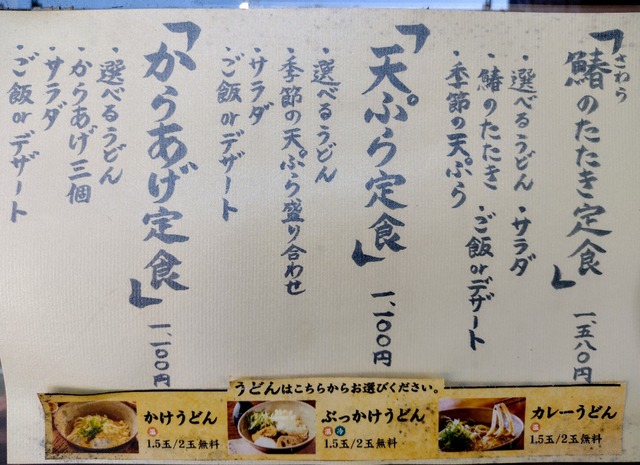 「鰆のたたき定食」 一、五八〇円
さわら
・選べるうどん ・サラダ
・鰆のたたき ・ご飯orデザート
・季節の天ぷら
「天ぷら定食」 一、一〇〇円
・選べるうどん
・季節の天ぷら盛り合わせ
・サラダ
・ご飯orデザート
「からあげ定食」 一、一〇〇円
・選べるうどん
・からあげ三個
・サラダ
・ご飯orデザート
うどんはこちらからお選びください。
かけうどん
温
1.5玉/2玉無料
ぶっかけうどん
温 冷
1.5玉/2玉無料
カレーうどん
温
1.5玉/2玉無料